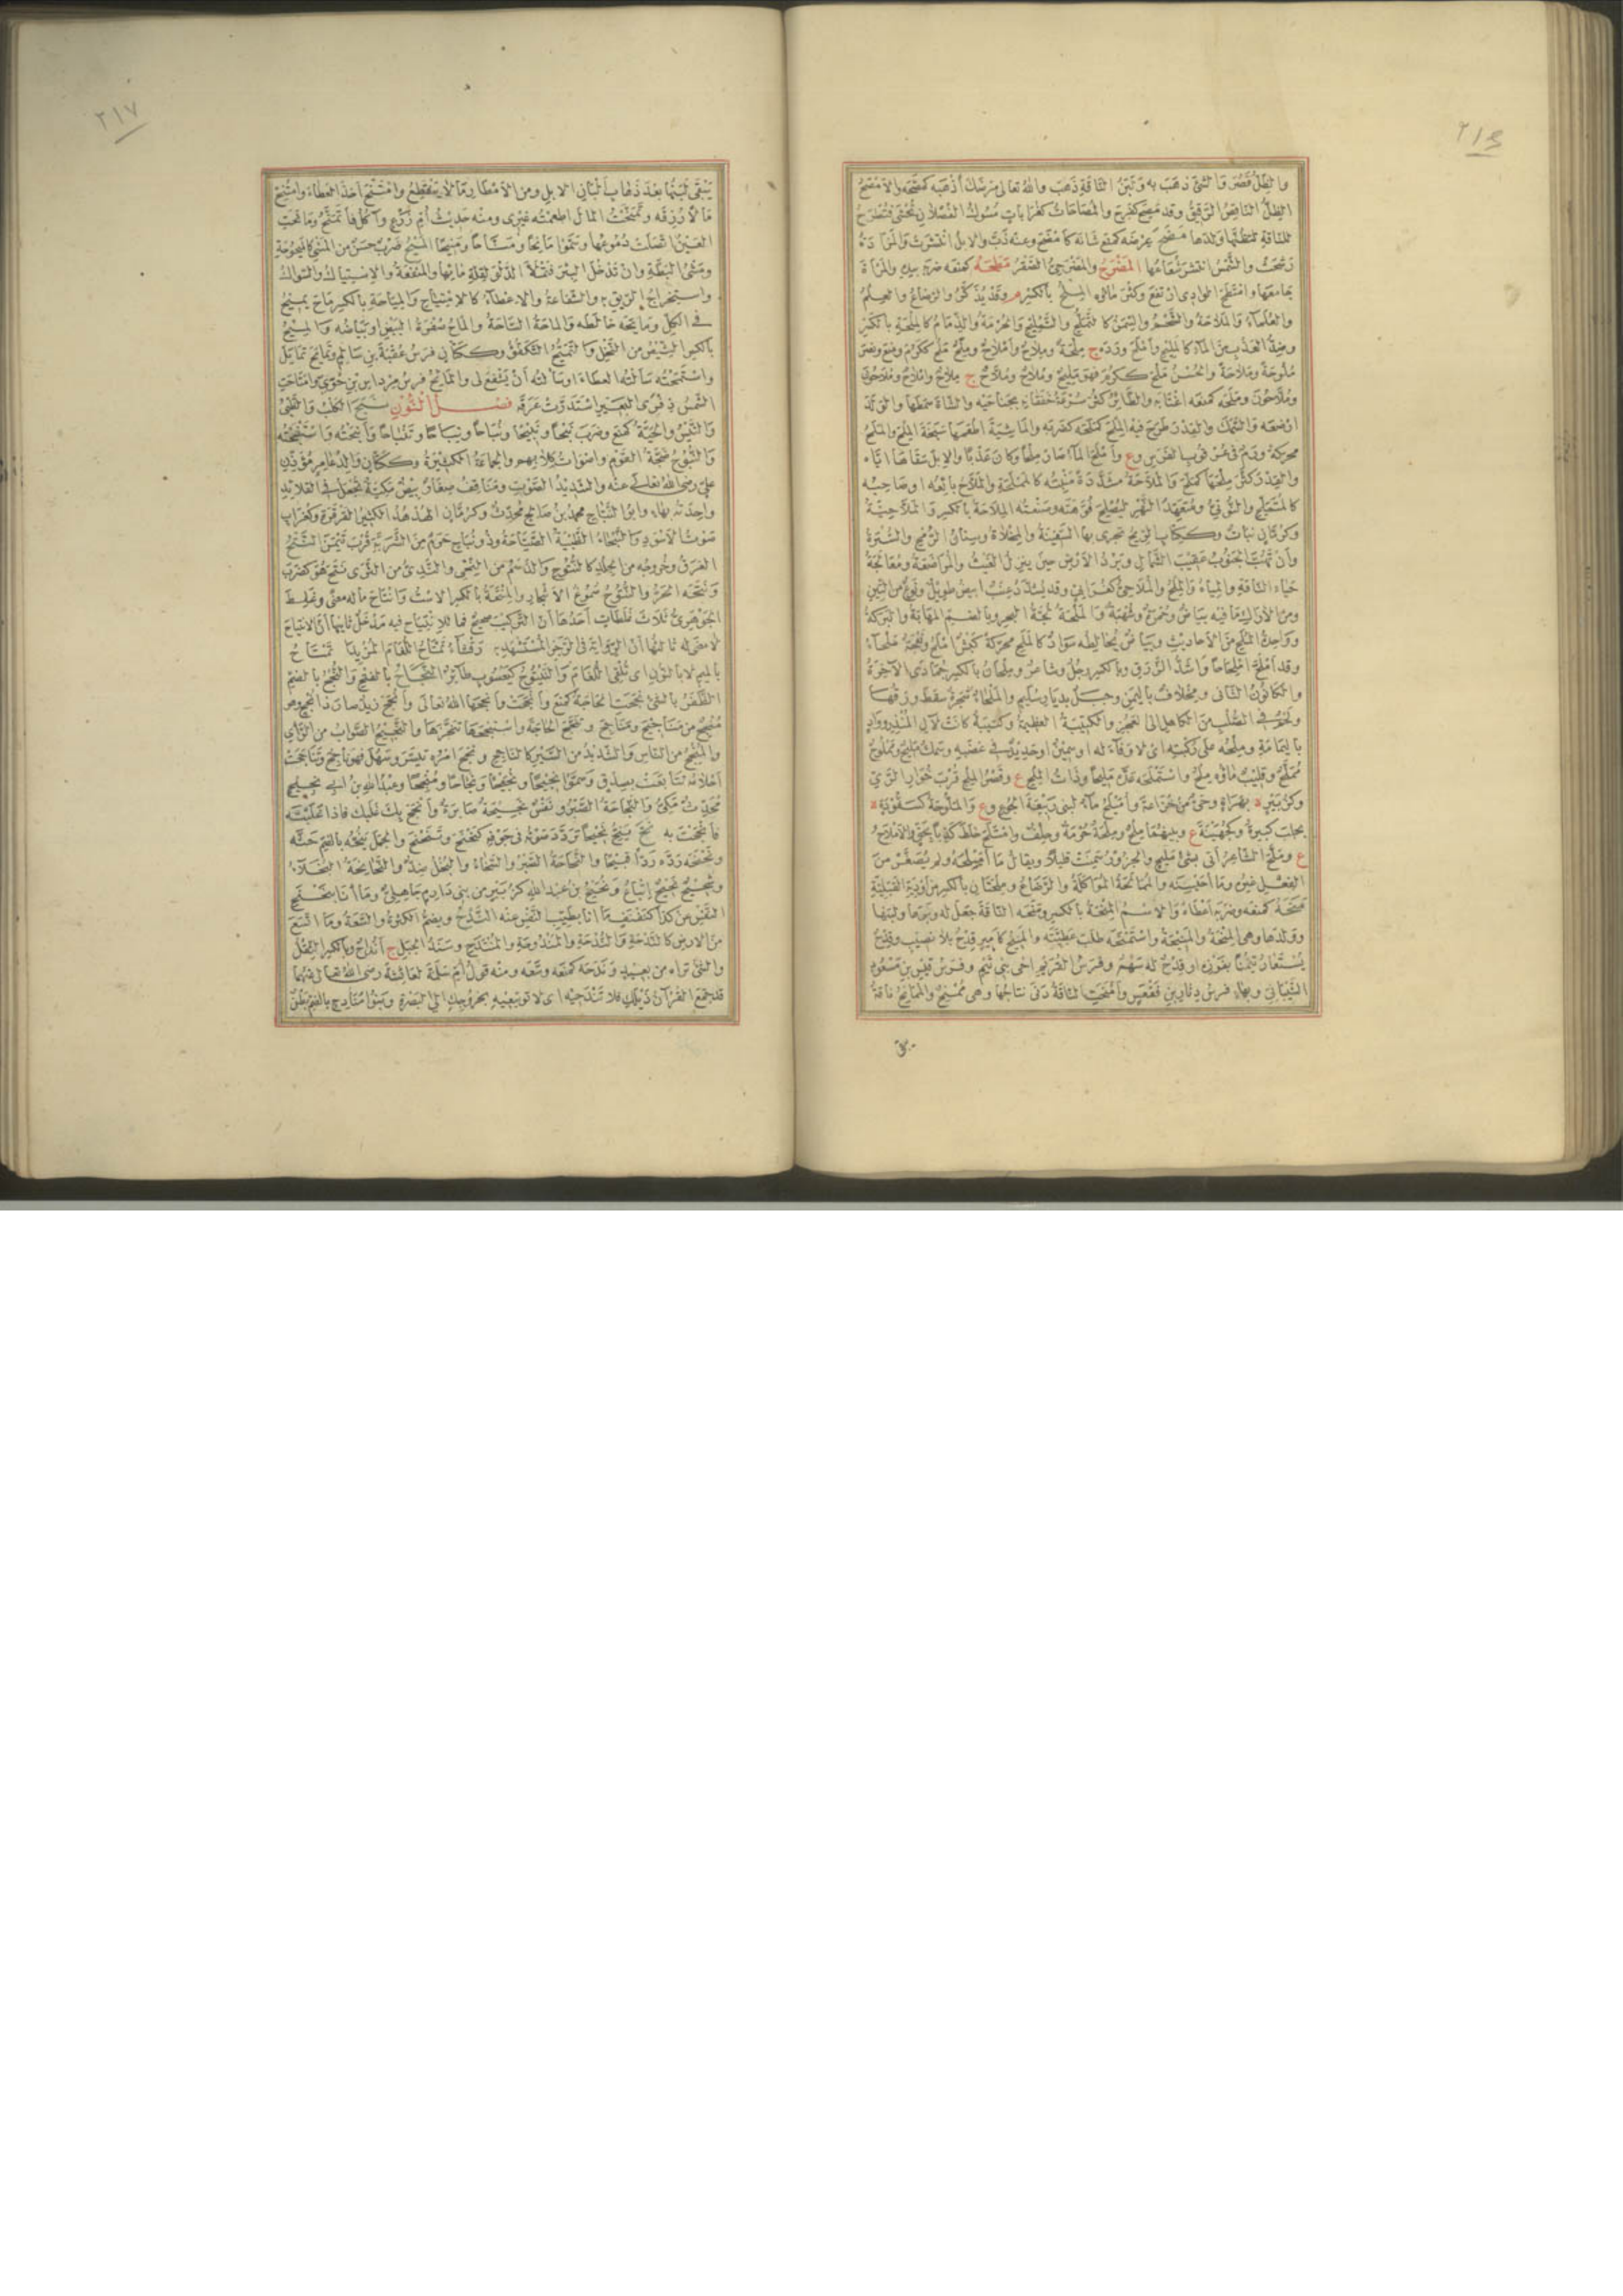 ٢١٦
والظل قصر والشئ ذهب به ولبن الناقة ذهب والله تعالى مرضك أذهبه كمصحه والامصح
الظل الناقص الرقيق وقد مصح كفرح والمصاحات كغرابات مسوك الفصلان تحشى فتطرح
للناقة لتظنها ولدها مضح عرضه كمنع شانه كامضح وعنه ذب والابل انتشرت والمزادة
رشحت والشمس انتشر شعاعها المضرح والمضرحي الصقر مطحه كمنعه ضربه بيده والمرأة
جامعها وامتطح الوادي ارتفع وكثر ماؤه الملح بالكسر م وقد يذكر والرضاع والعلم
والعلماء والملاحة والشحم والسمن كالتملح والتمليح والحرمة والذمام كالملحة بالكسر
وضد العذب من الماء كالمليح وأملح ورده ج ملحة وملاح وأملاح وملح ملح ككرم ومنع ونصر
ملوحة وملاحة والحسن ملح ككرم فهو مليح وملاح وملاح ج ملاح واملاح وملاحون
وملاحون وملحه كمنعه اغتابه والطائر كثر سرعة خفقانه بجناحيه والشاة سمطها والولد
ارضعه والسمك والقدر طرح فيه الملح كملحه كضربه والماشية اطعمها سبخة الملح والملح
محركة ورم في عرقوب الفرس وع وأملح الماء صار ملحا وكان عذبا والابل سقاها اياه
والقدر كثر ملحها كملح والملاحة مشددة منبته كالمملحة والملاح بائعه او صاحبه
كالمتملح والنوتي ومتعهد النهر ليصلح فوهته وصنعته الملاحة بالكسر والملاحية
وكرمان نبات وككتاب الريح تجري بها السفينة والمخلاة وسنان الرمح والسترة
وأن تهب الجنوب عقيب الشمال وبرد الارض حين ينزل الغيث والمراضعة ومعالجة
حياء الناقة والمياه والملح والملاحي كغرابي وقد يشدد عنب ابيض طويل ونوع من التين
ومن الاراك ما فيه بياض وحمرة وشهبة والملحة لجة البحر وبالضم المهابة والبركة
وواحدة الملح من الاحاديث وبياض يخالطه سواد كالملح محركة كبش أملح ونعجة ملحاء
وقد املح املحاحا واشد الزرق وبالكسر رجل وشاعر وملحان بالكسر جمادى الآخرة
والكانون الثاني ومخلاف باليمن وجبل بديار سليم والملحاء شجرة سقط ورقها
ولحم في الصلب من الكاهل الى العجز والكتيبة العظيمة وكتيبة كانت لآل المنذر وواد
باليمامة وملحه على ركبته اى لا وفاء له او سمين او حديد في غضبه وسمك مليح ومملوح
مملح وقليب ماؤه ملح واستملحه عده مليحا وذات الملح ع وقصر الملح قرب خوار الري
وكزبير ة بهراة وحي من خزاعة وأميلح ماء لبني ربيعة الجوع وع والملوحة كسفودة ة
بحلب كبيرة وكجهينة ع وبينهما ملح وملحة حرمة وحلف وامتلح خلط كذبا بحق والاملاح
ع وملح الشاعر أتى بشئ مليح والجزور سمنت قليلا ويقال ما أميلحه ولم يصغر من
الفعل غيره وما أحيسنه والممالحة المواكلة والرضاع وملحتان بالكسر من أودية القبلية
منحه كمنعه وضربه أعطاه والاسم المنحة بالكسر ومنحه الناقة جعل له وبرها ولبنها
وولدها وهي المنحة والمنيحة واستمنحه طلب عطيته والمنيح كامير قدح بلا نصيب وقدح
يستعار تيمنا بفوزه او قدح له سهم وفرس القريم اخي بني تيم وفرس قيس بن مسعود
الشيباني وبهاء فرس دثار بن فقعس وأمنحت الناقة دنى نتاجها وهي ممنح والممانح ناقة
يبقى
٢١٧
يبقى لبنها بعد ذهاب ألبان الابل ومن الامطار ما لا ينقطع وامتنح أخذ العطاء وامتنح
مالا رزقه وتمنحت المال اطعمته غيرى ومنه حديث أم زرع وآكل فأتمنح ومانحت
العين اتصلت دموعها وسموا مانحا ومناحا ومنيحا الميح ضرب حسن من المشي كالميحوحة
ومشي البطة وان تدخل البئر فتملأ الدلو لقلة مائها والمنفعة والاستياك والسواك
واستخراج الريق به والشفاعة والاعطاء كالامتياح والمياحة بالكسر ماح يميح
في الكل وما يحه خالطه والماحة الساحة والماح صفرة البيض او بياضه والميح
بالكسر الشيص من النخل والتميح التكفؤ وككتان فرس عقبة بن سالم وتمايح تمايل
واستمحته سألته العطاء او سألته أن يشفع لى والمايح فرس مرداس بن حوى وامتاحت
الشمس ذفرى البعير استدرت عرقه فصل النون نبح الكلب والظبى
والتيس والحية كمنع وضرب نبحا ونبيحا ونباحا ونباحا وتنباحا وأنبحته واستنبحته
والنبوح ضجة القوم وأصوات كلابهم والجماعة الكثيرة وككتان والد عامر مؤذن
على رضى الله تعالى عنه والشديد الصوت ومناقف صغار بيض مكية تجعل في القلائد
واحدته بهاء وابو النباح محمد بن صالح محدث وكرمان الهدهد الكثير القرقرة وكغراب
صوت الاسود والنبحاء الظبية الصياحة وذو نباح حزم من الشربة قرب تيمن النتح
العرق وخروجه من الجلد كالنتوح والدسم من النحى والندى من الثرى نتح هو كضرب
ونتحه الحر والنتوح صموغ الاشجار والمنتحة بالكسر الاست وانتاح ماله معنى وغلط
الجوهرى ثلاث غلطات أحدها أن التركيب صحيح فما للانتياح فيه مدخل ثانيها أن الانتياح
لا معنى له ثالثها أن الرواية فى الرجز المستشهد به رقشاء تمتاح اللغام المزبدا تمتاح
بالميم لا بالنون اى تلقى اللغام والينتوح كيعسوب طائر النجاح بالفتح والنجح بالضم
الظفر بالشئ نجحت الحاجة كمنع وأنجحت وأنجحها الله تعالى وأنجح زيد صار ذا نجح وهو
منجح من مناجيح ومناجح وتنجح الحاجة واستنجحها تنجزها والنجيح الصواب من الرأي
والمنجح من الناس والشديد من السير كالناجح ونجح امره تيسر وسهل فهو ناجح وتناجحت
أحلامه تتابعت بصدق وسموا نجيحا ونجيحا ونجاحا ومنجحا وعبد الله بن ابي نجيح
محدث مكي والنجاحة الصبر ونفس نجيحة صابرة وأنجح بك غلبك فاذا غلبته
فأنجحت به نح ينح نحيحا تردد صوته في جوفه كنحنح وتنحنح والجمل ينحه بالضم حثه
ونحنحه رده ردا قبيحا والنحاحة الصبر والسخاء والبخل ضد والنحانحة البخلاء
وشحيح نحيح إتباع ونحيح بن عبد الله كزبير من بني دارم جاهلي وما أنا بنحنح
النفس عن كذا كنفنف ما أنا بطيب النفس عنه الندح ويضم الكثرة والسعة وما اتسع
من الارض كالندحة والندحة والمندوحة والمنتدح وسند الجبل ج أنداح وبالكسر الثقل
والشئ تراه من بعيد وندحه كمنعه وسعه ومنه قول أم سلمة لعائشة رضى الله تعالى عنهما
قد جمع القرآن ذيلك فلا تندحيه اى لا توسعيه بخروجك الى البصرة وبنو منادح بالضم بطن